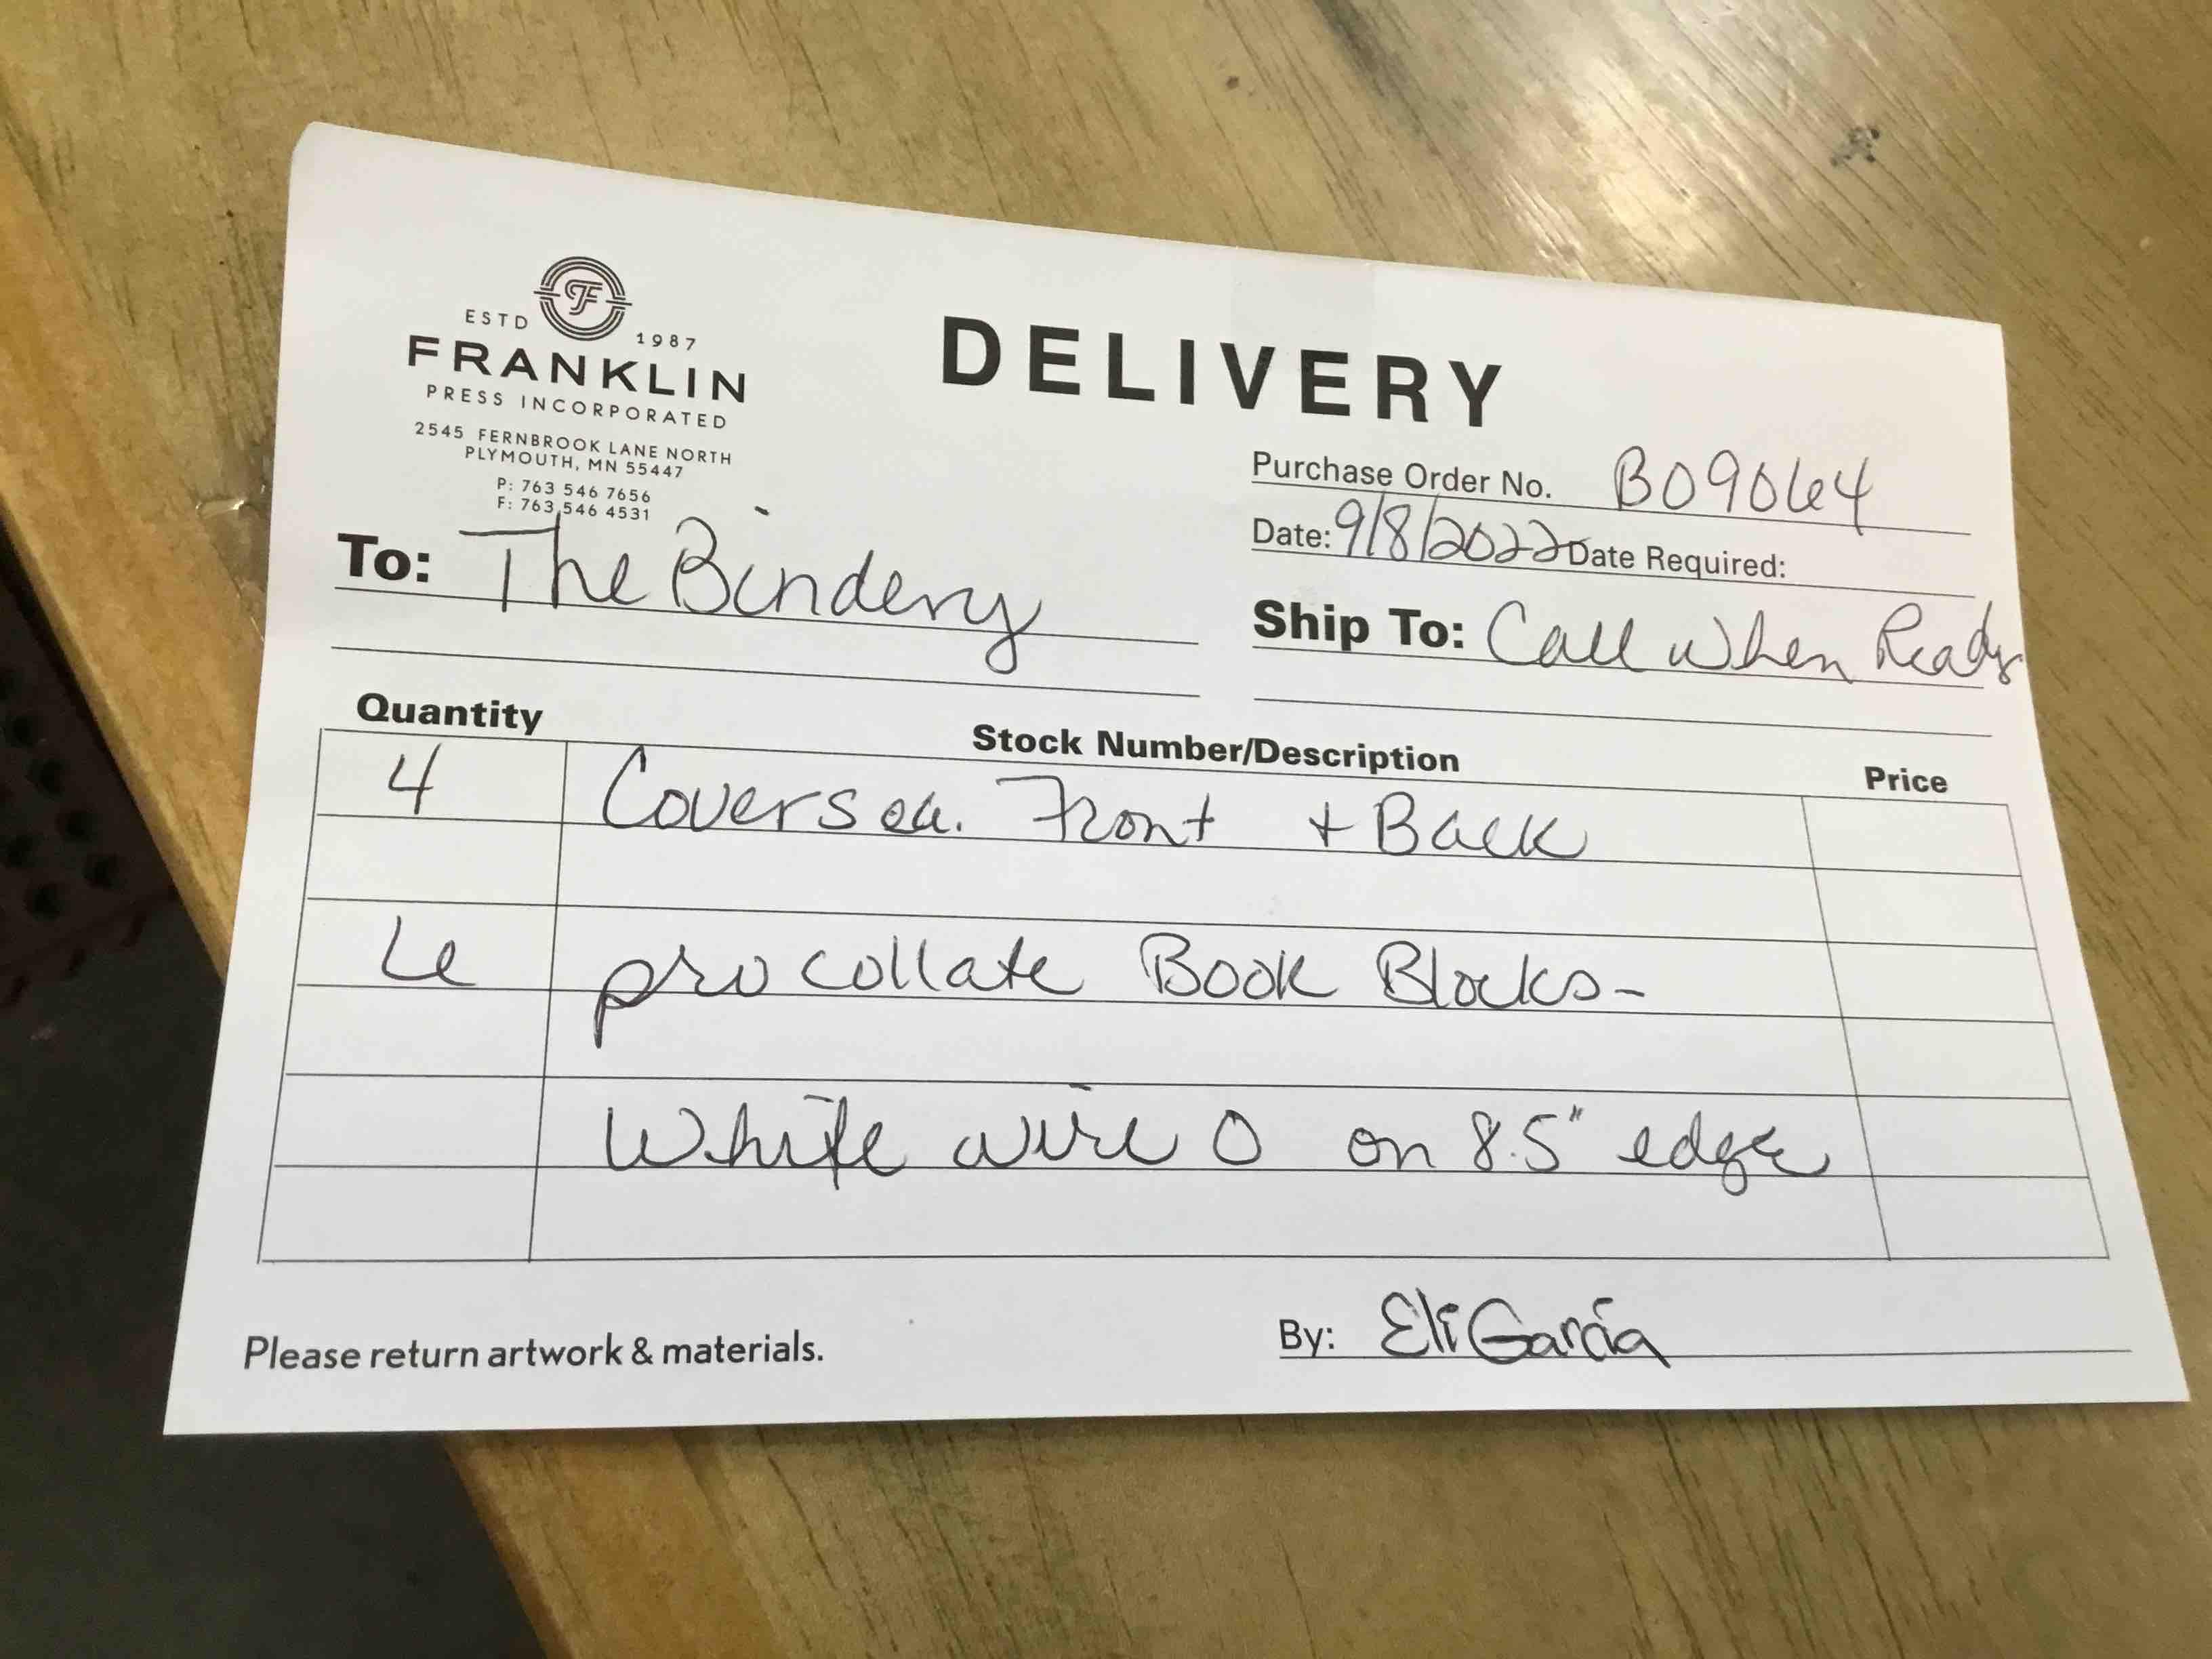 ESTD 1987
FRANKLIN
PRESS INCORPORATED
2545 FERNBROOK LANE NORTH
PLYMOUTH, MN 55447
P: 763 546 7656
F: 763 546 4531
DELIVERY
Purchase Order No. B09064
Date: 9/8/2022 Date Required:
To: The Bindery
Ship To: Call when Ready
Quantity Stock Number/Description Price
4 Covers ea. Front + Back
procollate Book Blocks-
White wire O on 8.5" edge
Please return artwork & materials.
By: Eli Garcia